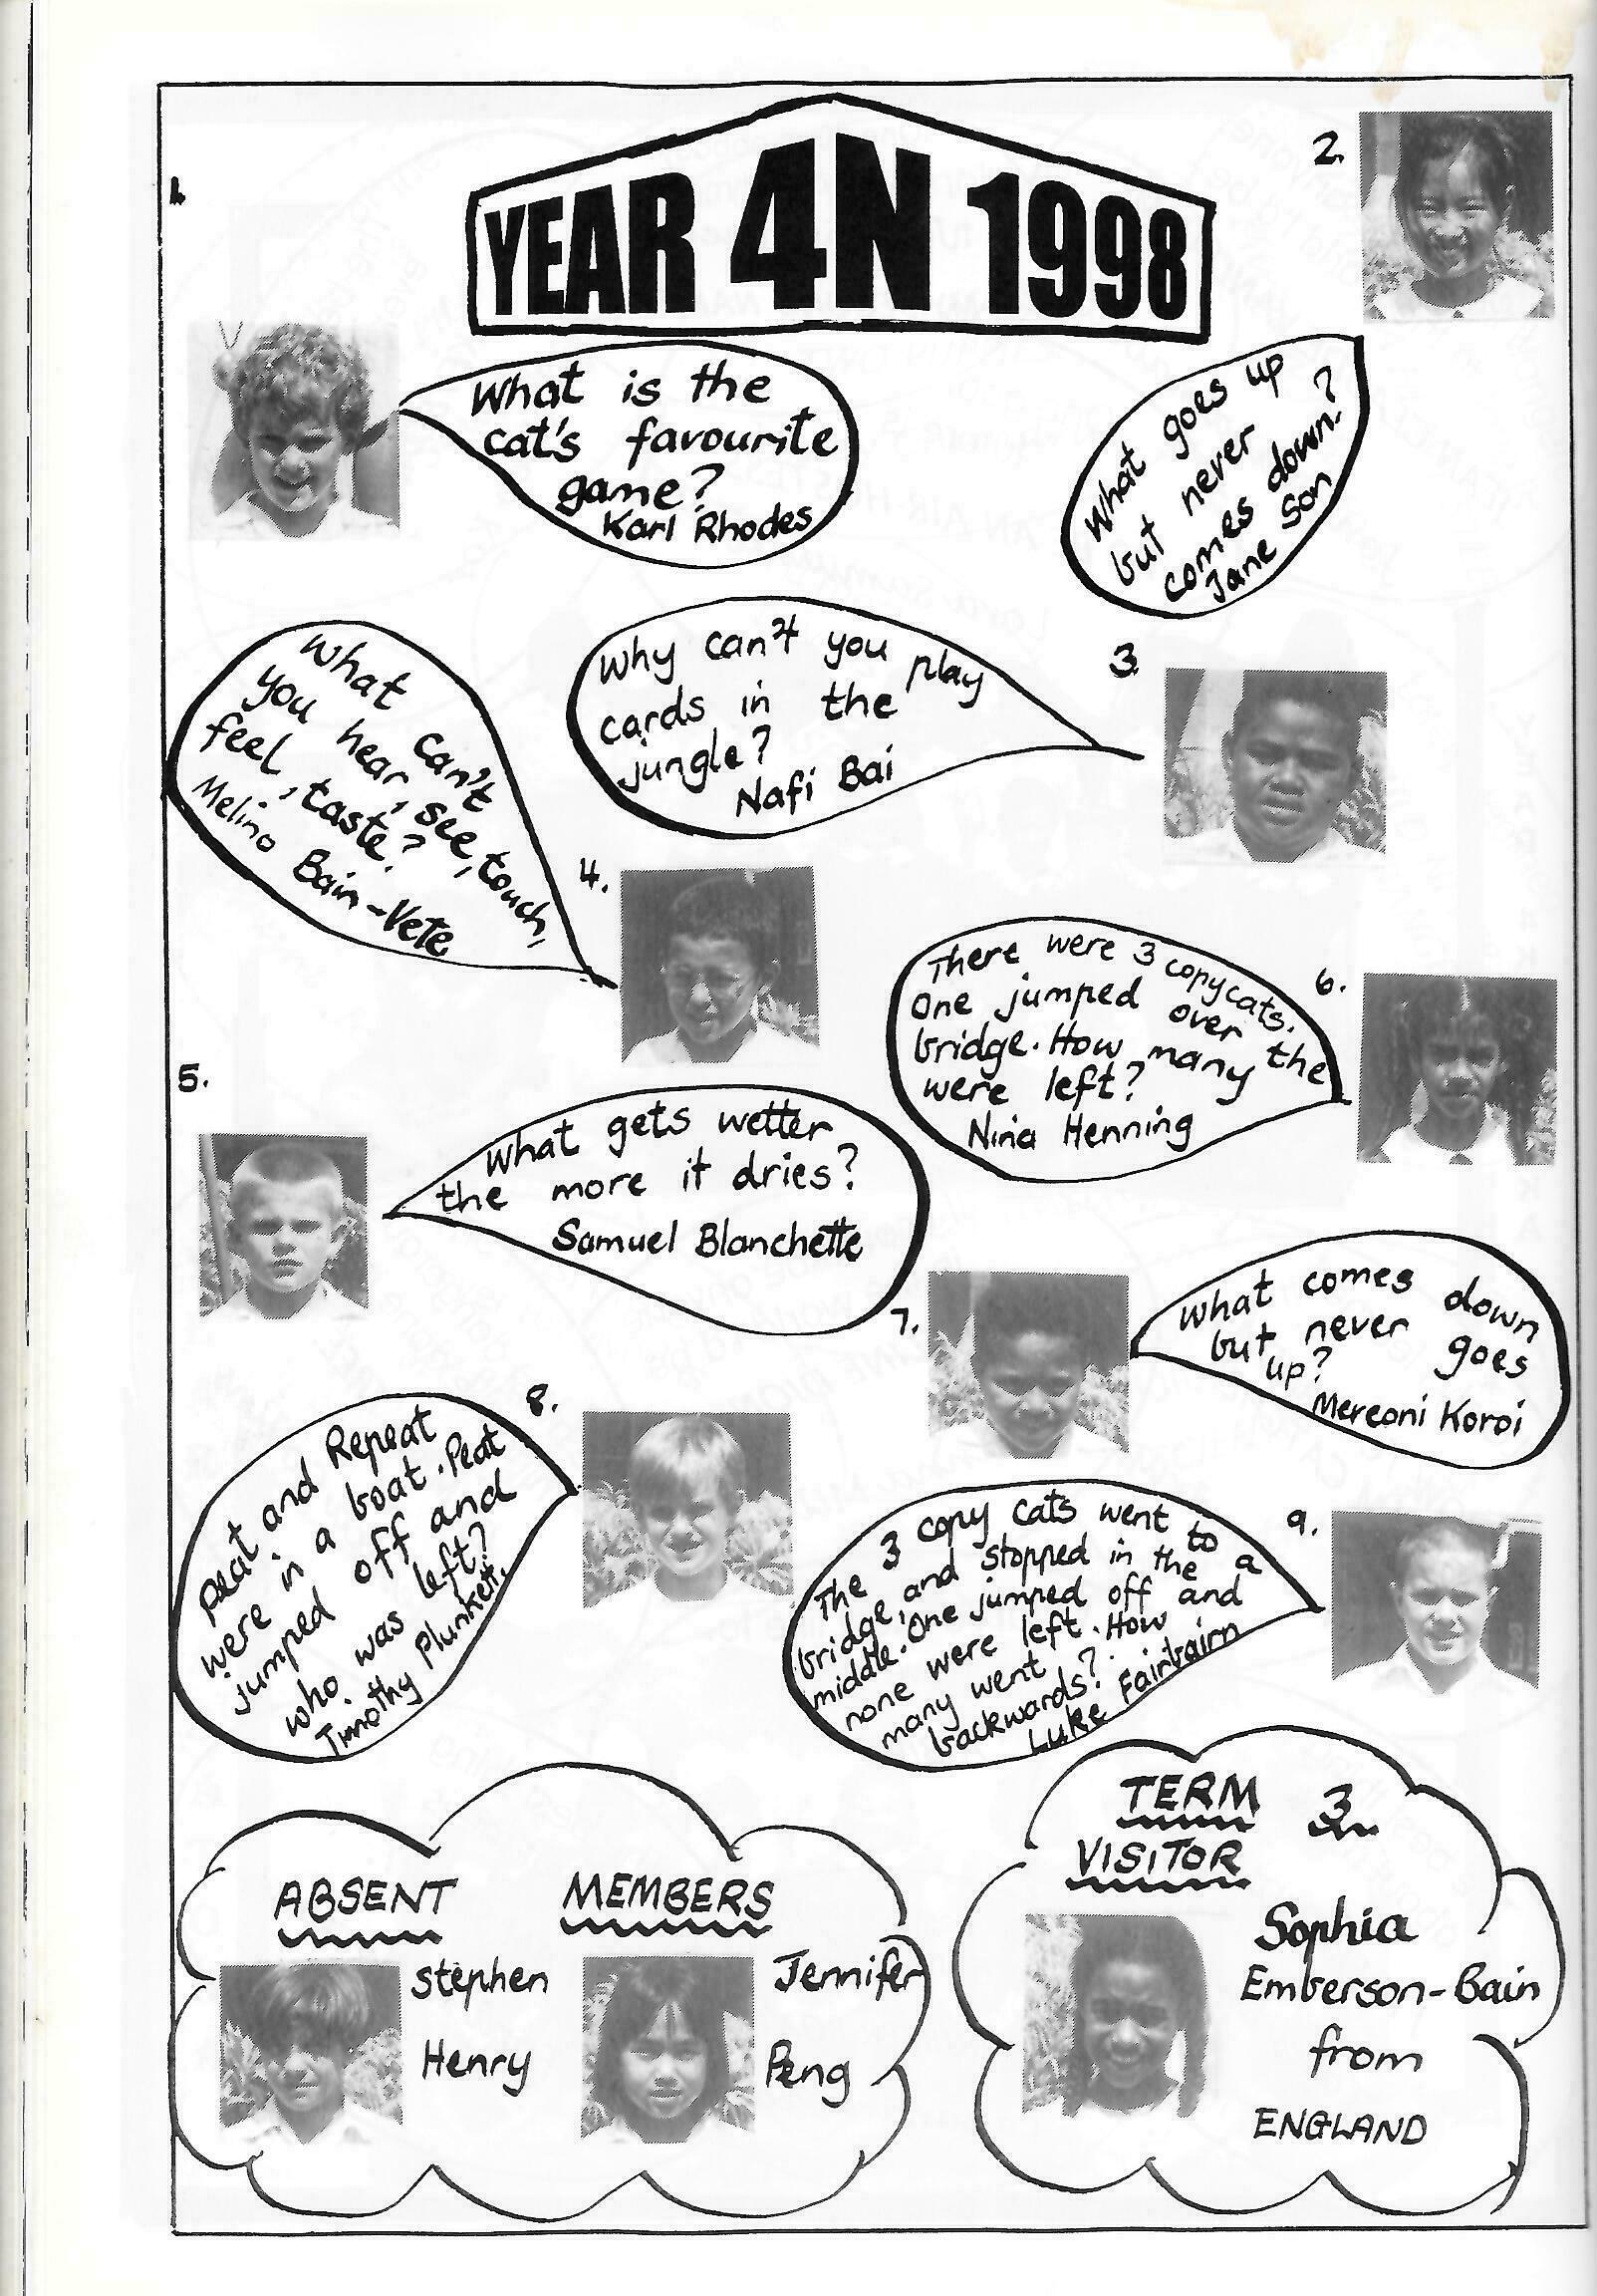 YEAR 4N 1998
1.
What is the
cat's favourite
game?
Karl Rhodes
2.
What goes up
but never
comes down?
Jane Son
3.
Why can't you play
cards in the
jungle?
Nafi Bai
4.
What can't
you hear, see, touch,
feel, taste?
Melino Bain-Vete
5.
What gets wetter
the more it dries?
Samuel Blanchette
6.
There were 3 copycats.
One jumped over the
bridge. How many
were left?
Nina Henning
7.
What comes down
but never goes
up?
Mereoni Koroi
8.
Peat and Repeat
were in a boat. Peat
jumped off and
who was left?
Timothy Plunkett.
9.
The 3 copy cats went to a
bridge, and stopped in the
middle. One jumped off and
none were left. How
many went
backwards?
Luke Fairbairn
ABSENT MEMBERS
Stephen
Henry
Jennifer
Peng
TERM 3
VISITOR
Sophia
Emberson-Bain
from
ENGLAND